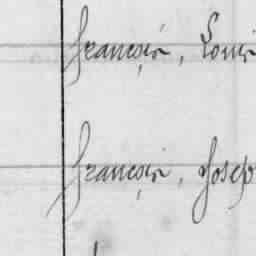 François, Louis
François, Josep